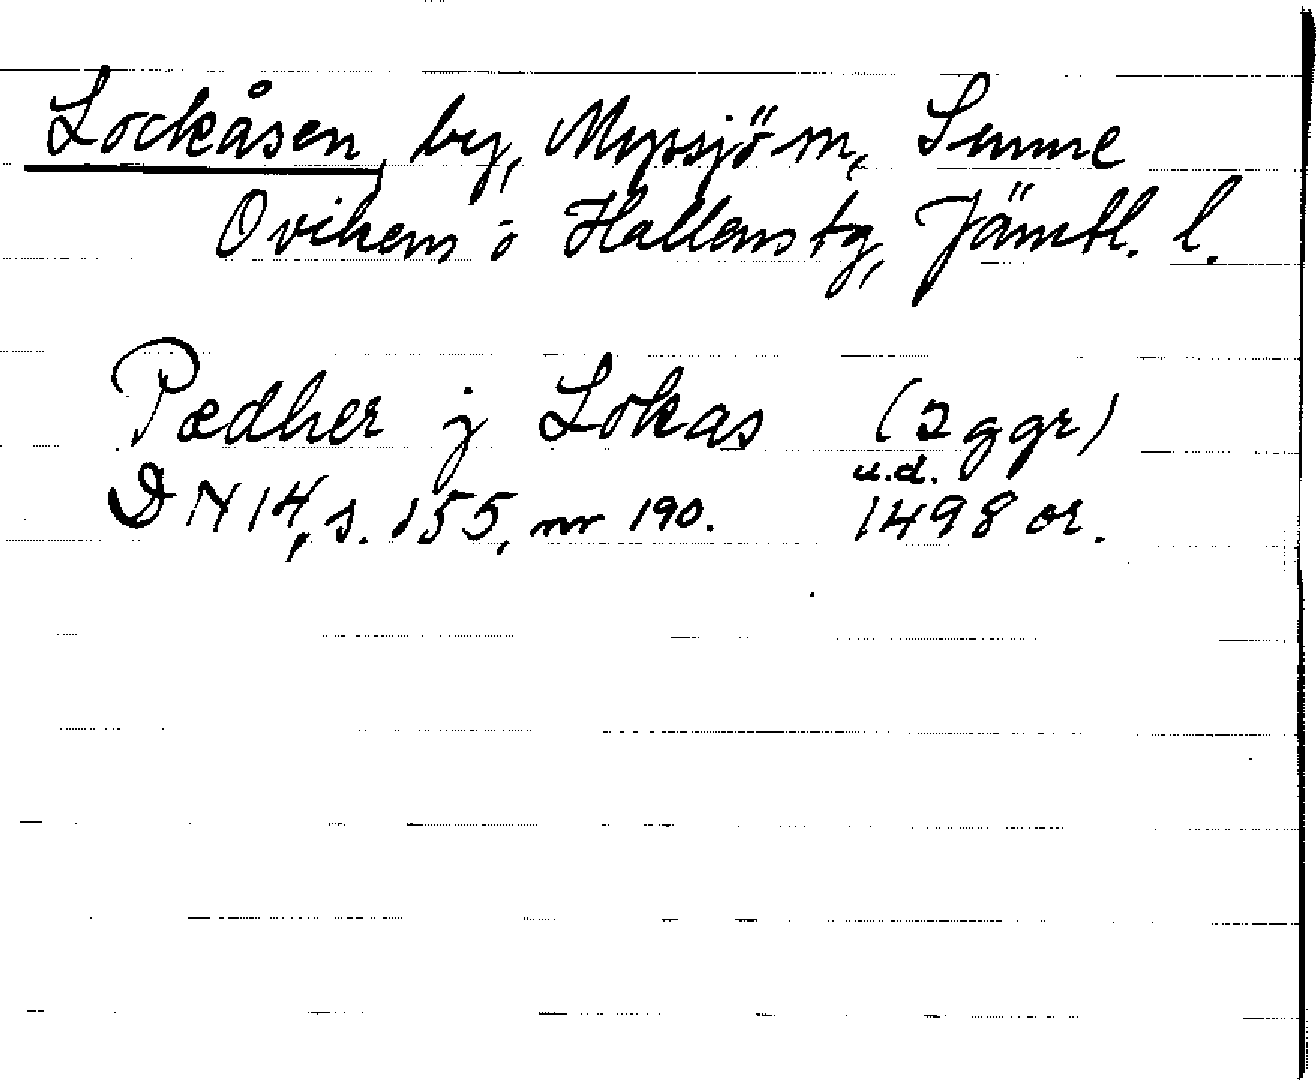 Lockåsen, by, Myssjö sn, Sunne
Ovikens o Hallens tg, Jämtl. l.
Pædher j Lokas (2 ggr)
u.d.
DN 14, s. 155, nr 190. 1498 or.